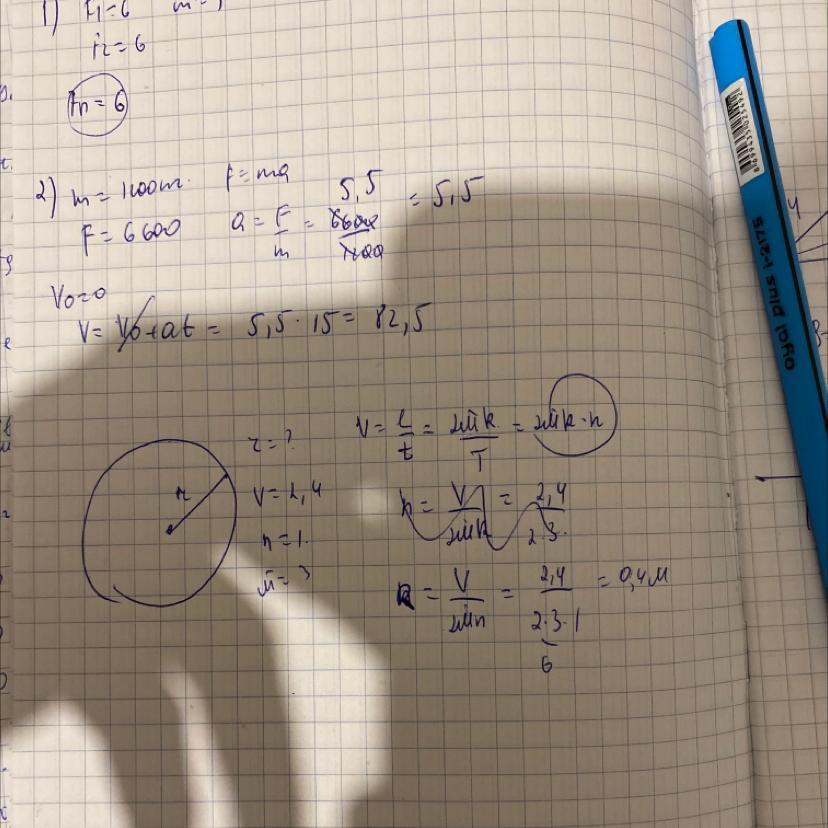 1) F1=6
F2=6
Fn = 6
2) m = 1200m. F=ma
F = 6600 a = F/m = 6600/1200 = 5,5
5,5
V0=0
V= V0+at = 5,5 · 15 = 82,5
r = ?
V = 2,4
n = 1.
π = 3
r
V = l/t = 2πR/T = 2πR·n
n = V/2πR = 2,4/2·3·
R = V/2πn = 2,4/2·3·1 = 0,4м
6
oyal plus i-2175